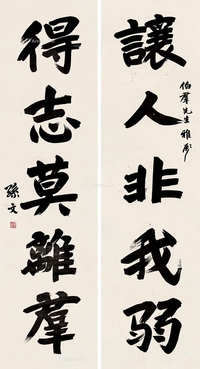 讓人非我弱
伯群先生雅屬
得志莫離羣
孫文